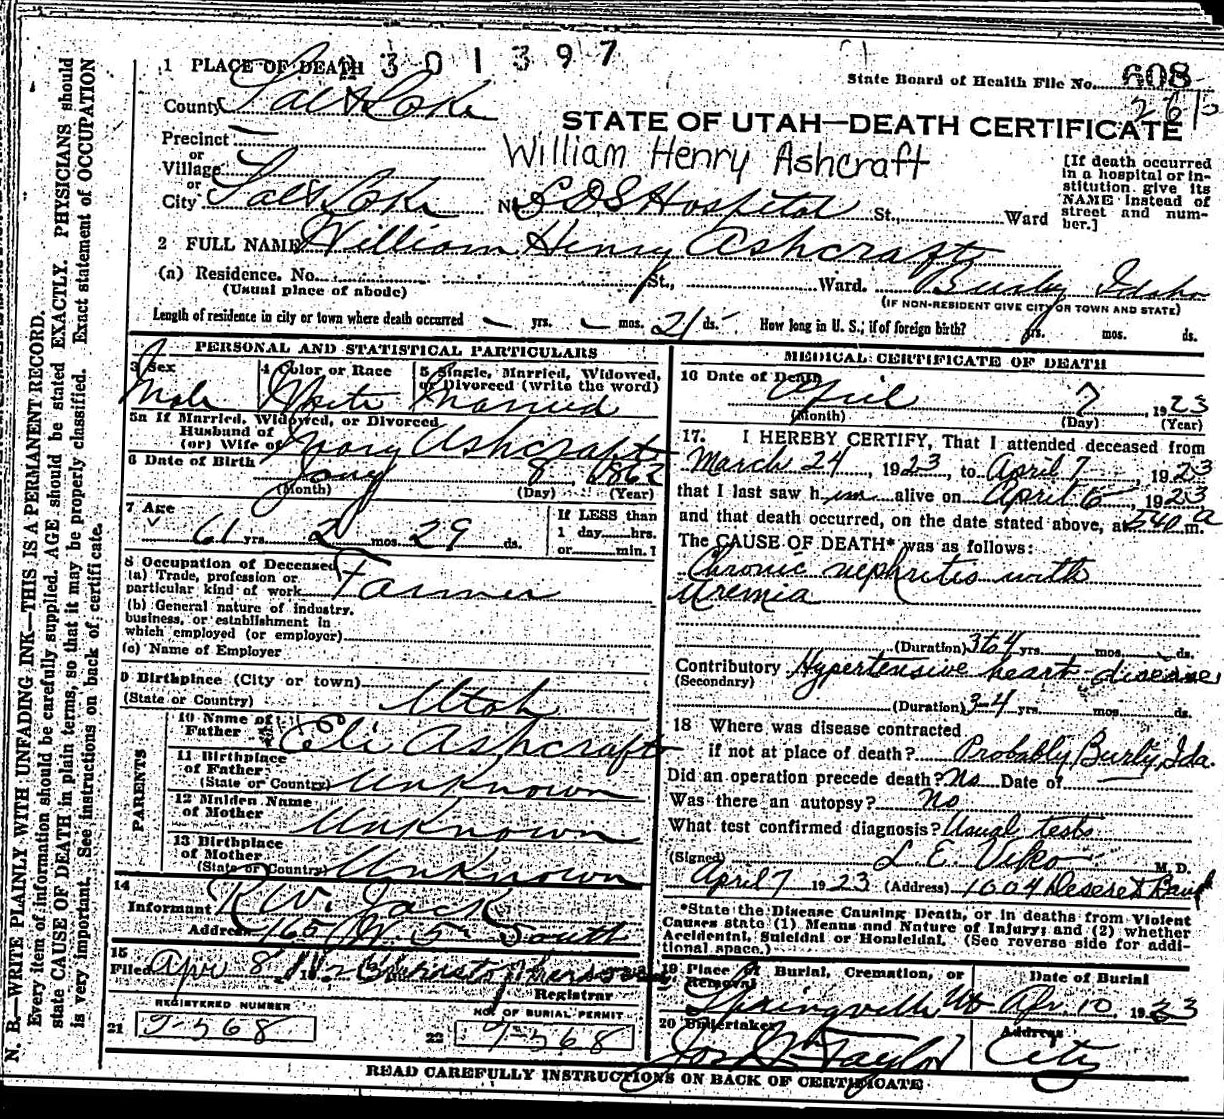 2301397
1 PLACE OF DEATH
State Board of Health File No. 608
County Salt Lake
26
STATE OF UTAH—DEATH CERTIFICATE
Precinct
or
William Henry Ashcraft
Village
or
City Salt Lake No LDS Hospital St., Ward
[If death occurred in a hospital or institution, give its NAME instead of street and number.]
2 FULL NAME William Henry Ashcraft
(a) Residence. No. St., Ward. Burley Idaho
(Usual place of abode)
(IF NON-RESIDENT GIVE CITY OR TOWN AND STATE)
Length of residence in city or town where death occurred — yrs. — mos. 21 ds. How long in U. S., if of foreign birth? yrs. mos. ds.
PERSONAL AND STATISTICAL PARTICULARS
3 Sex
Male
4 Color or Race
White
5 Single, Married, Widowed, or Divorced (write the word)
Married
5a If Married, Widowed, or Divorced
Husband of
(or) Wife of Mary Ashcraft
6 Date of Birth Jany 8 1862
(Month) (Day) (Year)
7 Age
61 yrs. 2 mos. 29 ds.
If LESS than
1 day hrs.
or min. ?
8 Occupation of Deceased
(a) Trade, profession or
particular kind of work Farmer
(b) General nature of industry,
business, or establishment in
which employed (or employer)
(c) Name of Employer
9 Birthplace (City or town)
(State or Country) Utah
PARENTS
10 Name of
Father Eli Ashcraft
11 Birthplace
of Father
(State or Country) Unknown
12 Maiden Name
of Mother Unknown
13 Birthplace
of Mother
(State or Country) Unknown
14
Informant R W. Jack
Address 165 W 5 South
15
Filed Apr 8
Registrar
REGISTERED NUMBER
21 J-568
NO. OF BURIAL PERMIT
22 J-568
MEDICAL CERTIFICATE OF DEATH
16 Date of Death
April 7, 1923
(Month) (Day) (Year)
17. I HEREBY CERTIFY, That I attended deceased from
March 24, 1923, to April 7, 1923
that I last saw him alive on April 6, 1923
and that death occurred, on the date stated above, at 540 a m.
The CAUSE OF DEATH* was as follows:
Chronic nephritis with
Uremia
(Duration) 3 to 4 yrs. mos. ds.
Contributory Hypertensive heart disease
(Secondary)
(Duration) 3-4 yrs. mos. ds.
18 Where was disease contracted
if not at place of death? Probably Burly, Ida.
Did an operation precede death? No Date of
Was there an autopsy? no
What test confirmed diagnosis? Usual tests
(Signed) L E M. D.
April 7 1923 (Address) 1004 Deseret Bank
*State the Disease Causing Death, or in deaths from Violent
Causes state (1) Means and Nature of Injury; and (2) whether
Accidental, Suicidal or Homicidal. (See reverse side for addi-
tional space.)
19 Place of Burial, Cremation, or Removal
Date of Burial
Springville Ut Apr. 10, 1923
20 Undertaker
Address
Jos Wm Taylor City
READ CAREFULLY INSTRUCTIONS ON BACK OF CERTIFICATE
N. B.—WRITE PLAINLY WITH UNFADING INK—THIS IS A PERMANENT RECORD.
Every item of information should be carefully supplied. AGE should be stated EXACTLY. PHYSICIANS should
state CAUSE OF DEATH in plain terms, so that it may be properly classified. Exact statement of OCCUPATION
is very important. See instructions on back of certificate.